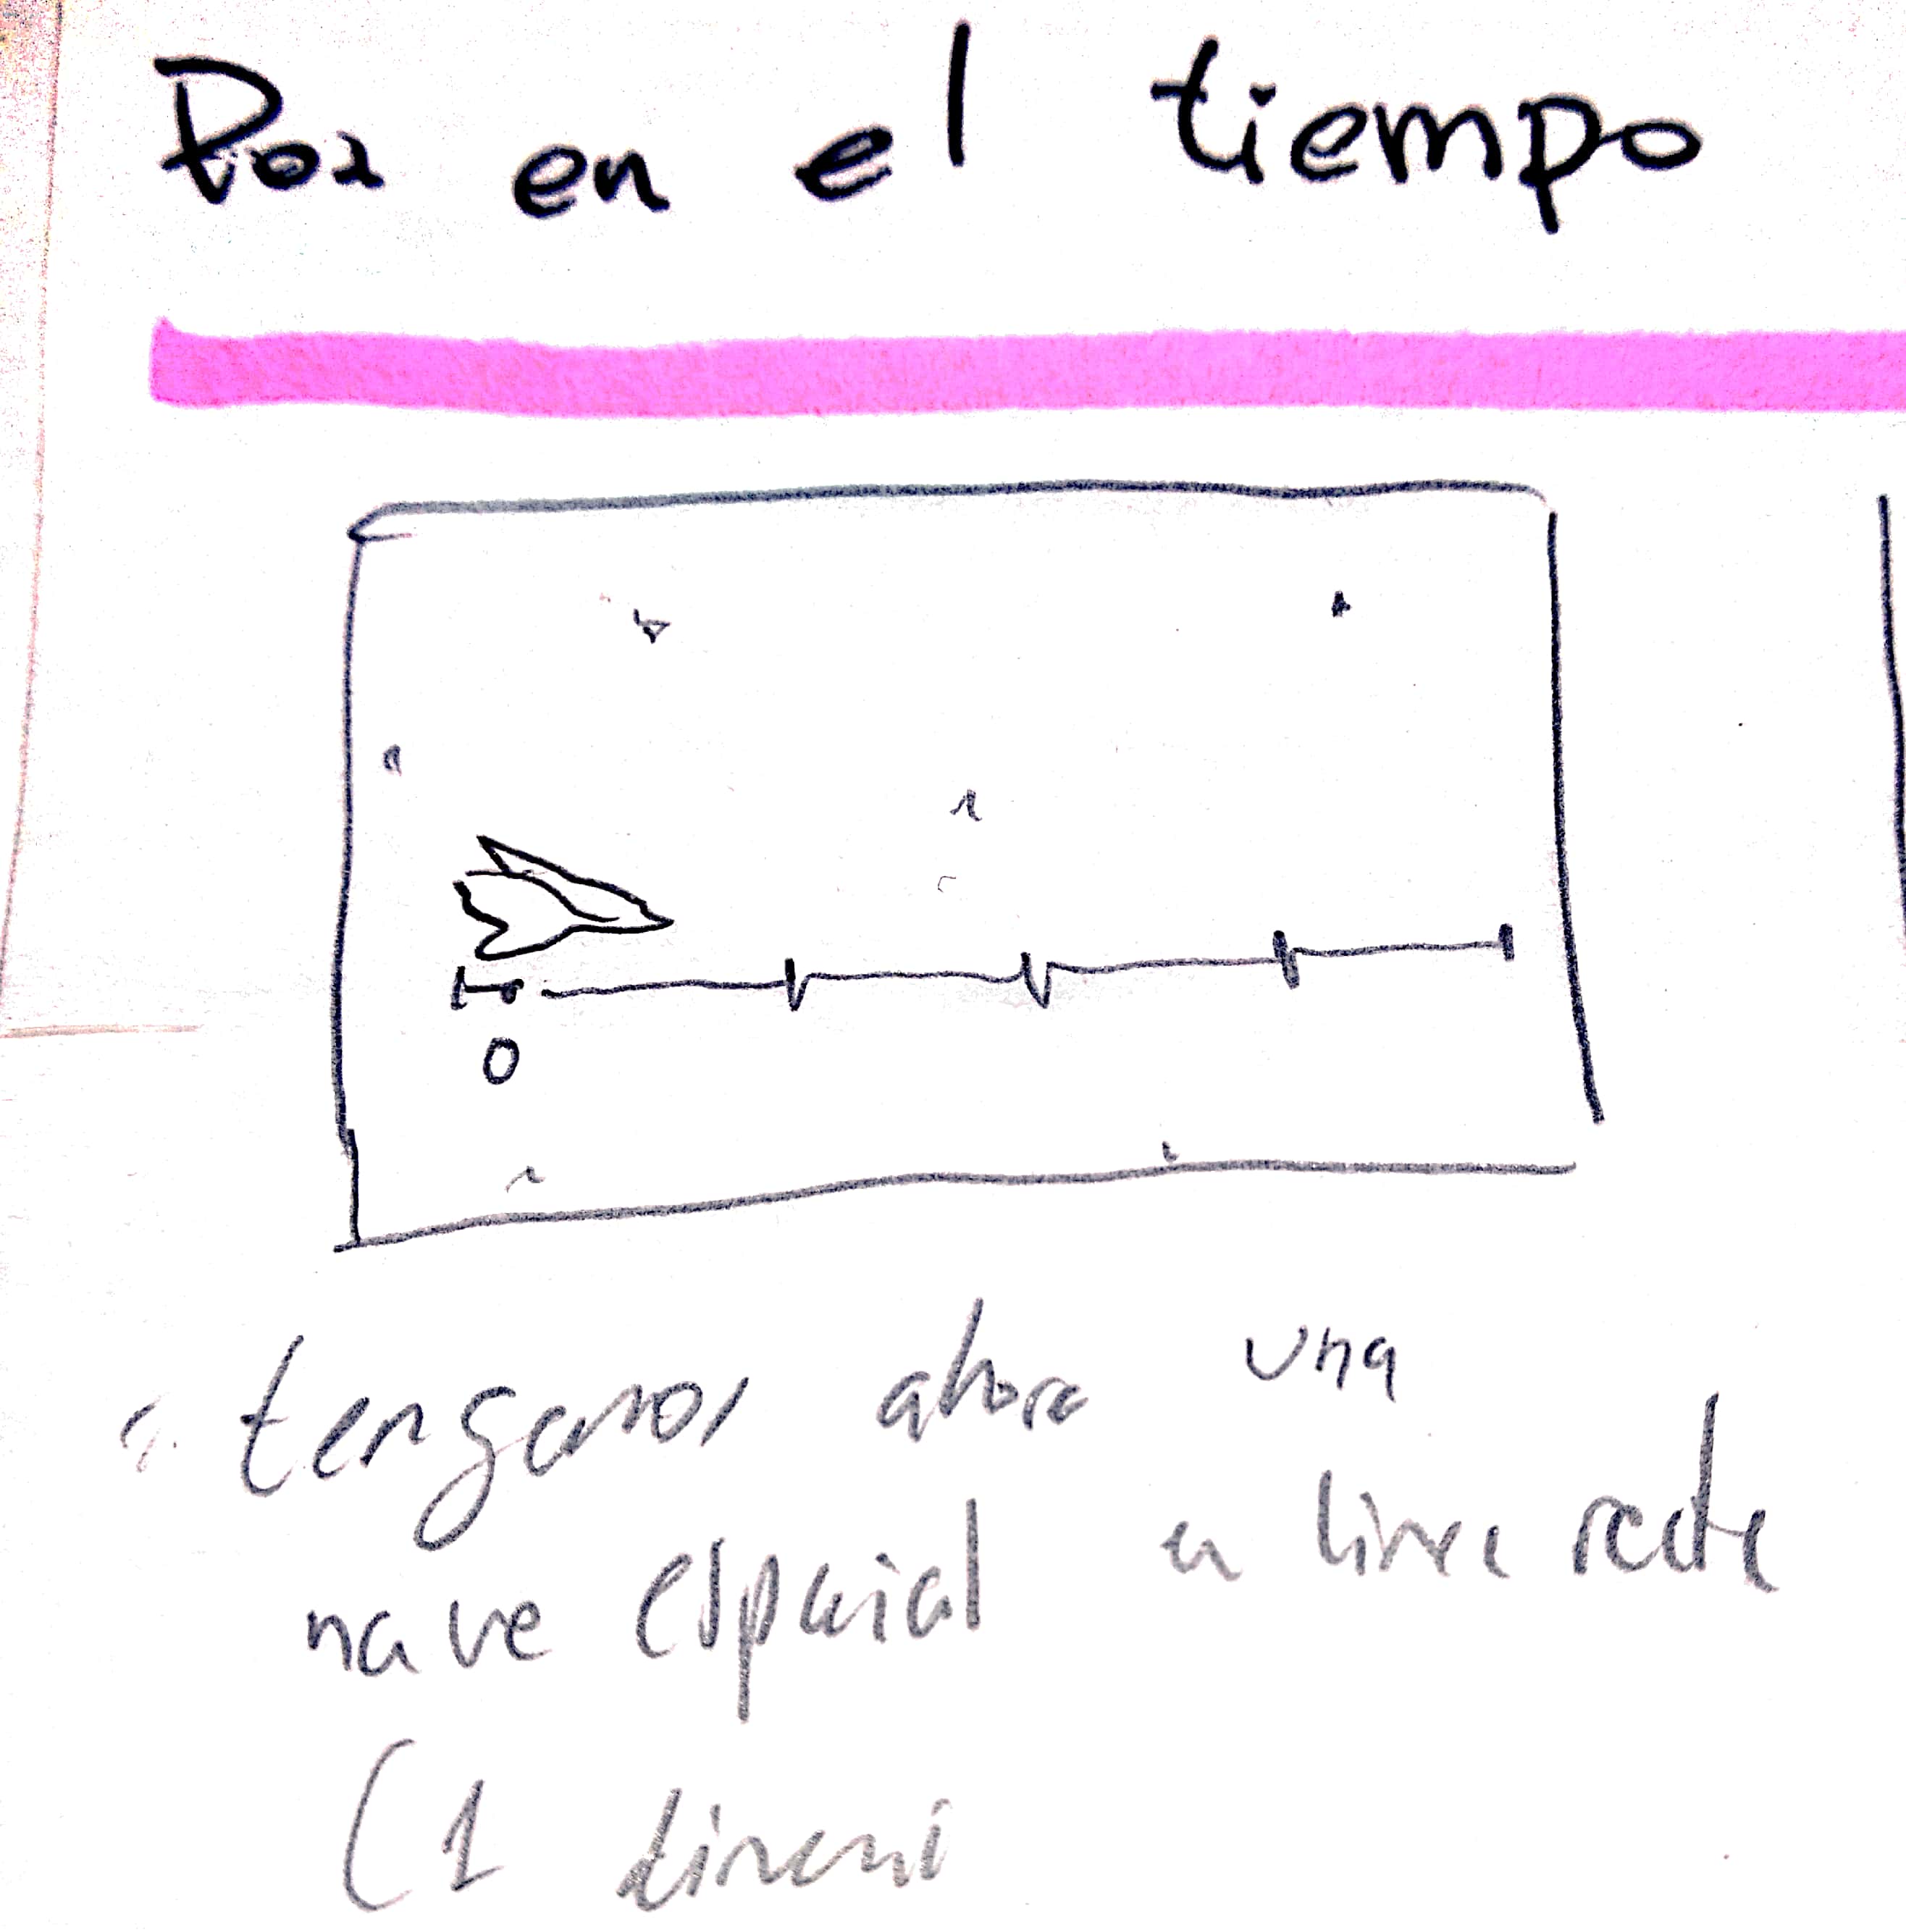 Pos en el tiempo
0
tengamos ahora una
nave espacial en linea recta
(1 dimensi